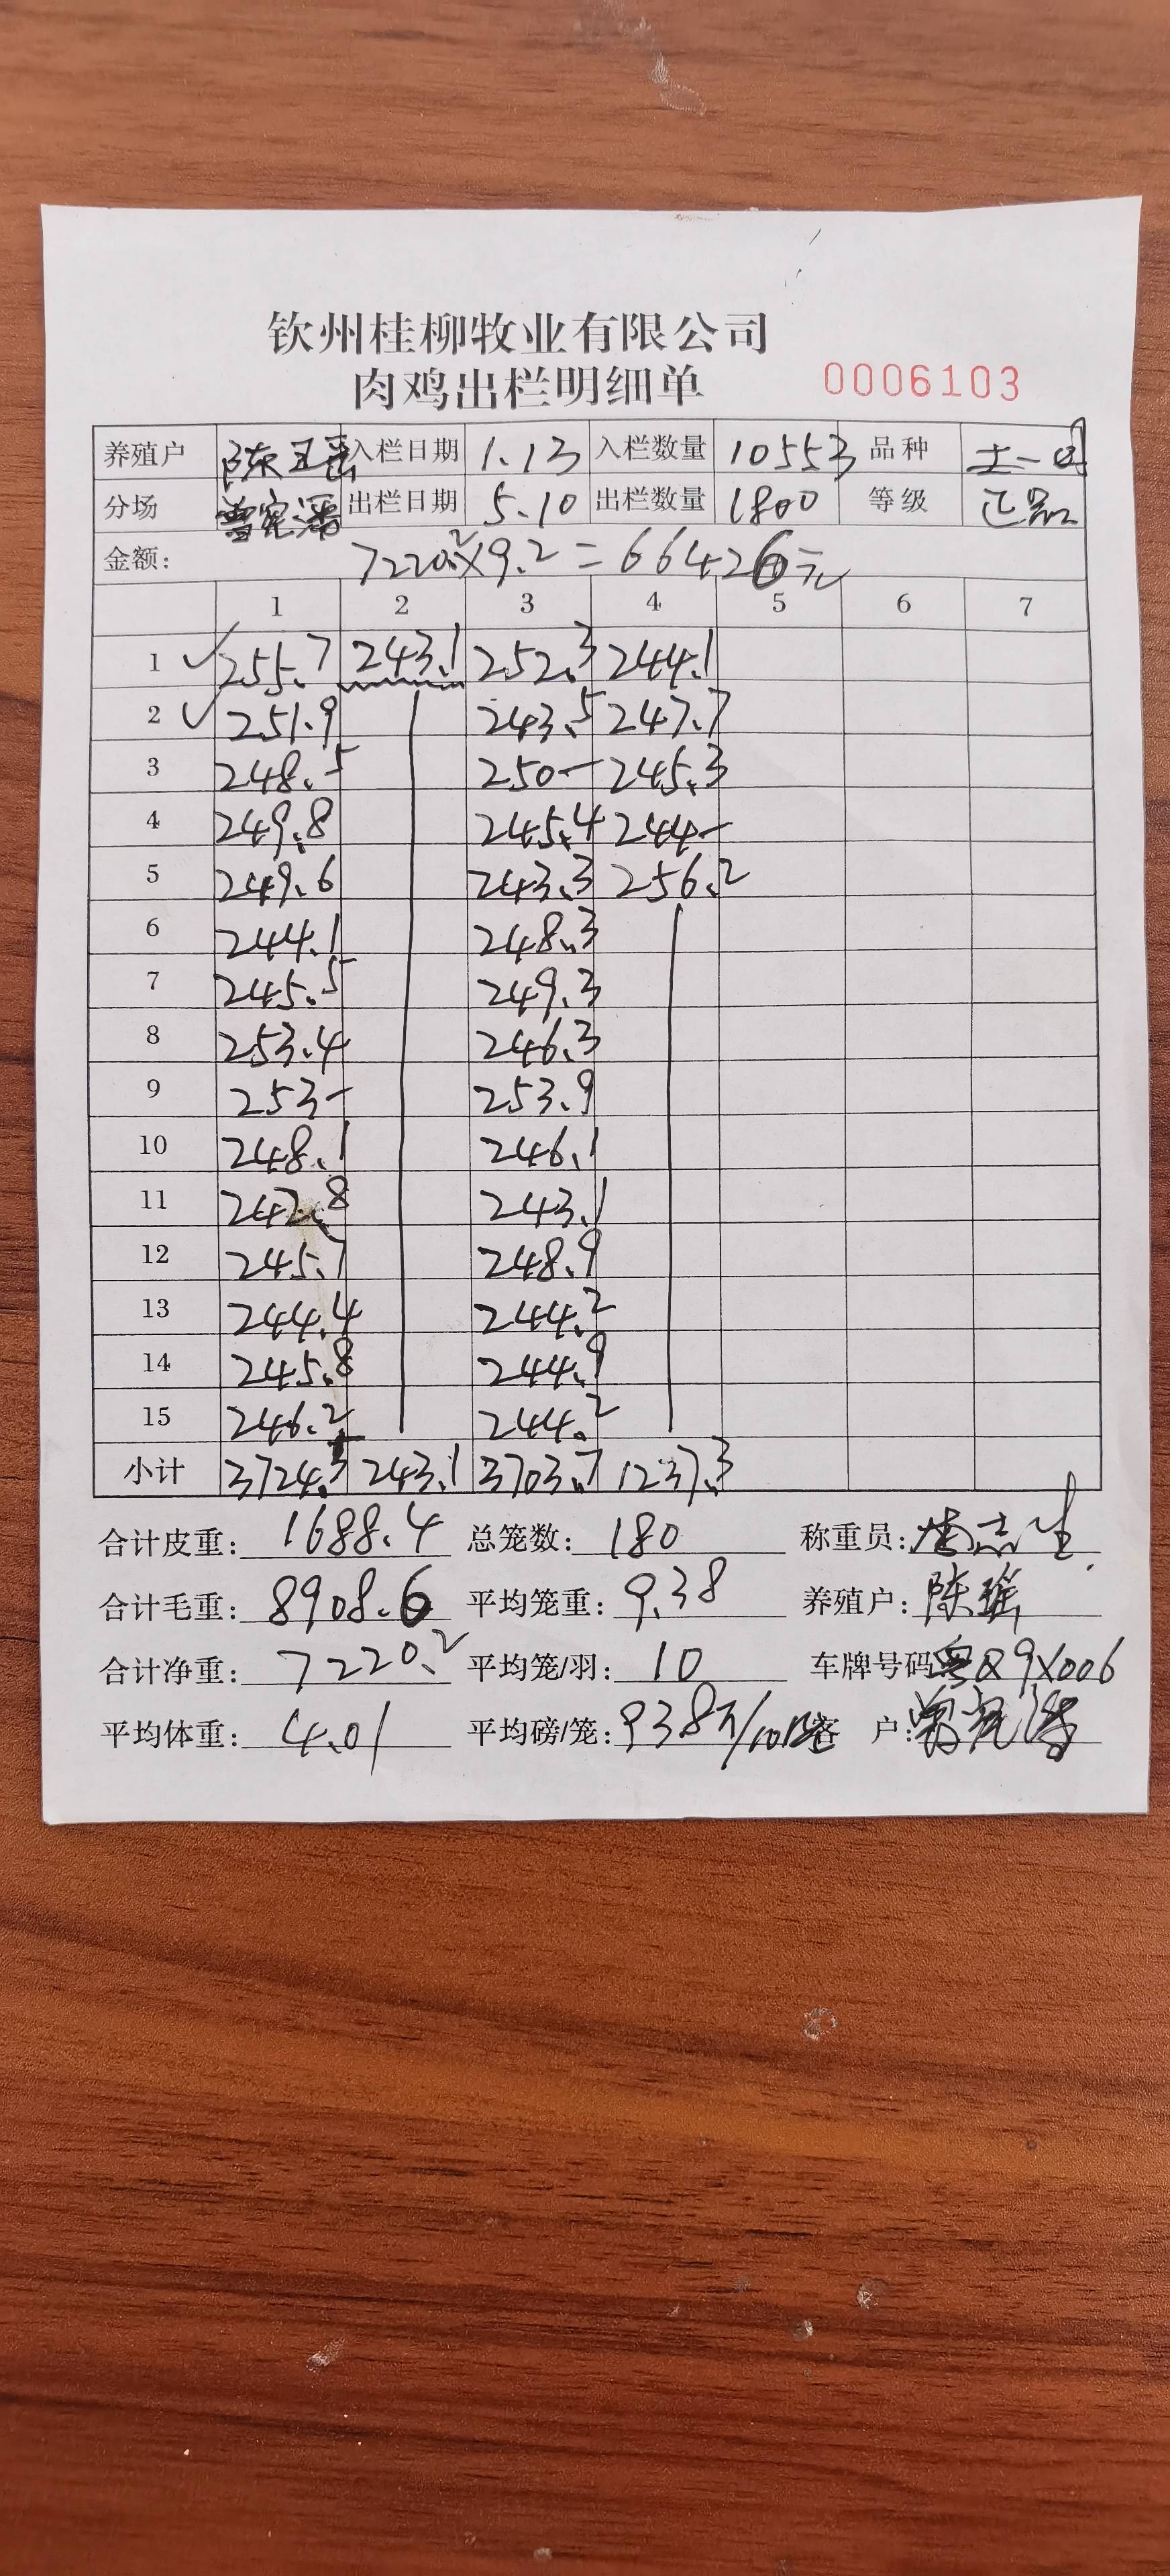 钦州桂柳牧业有限公司
肉鸡出栏明细单 0006103
养殖户 陈 入栏日期 1.13 入栏数量 10553 品种 土一
分场 曾宪潘 出栏日期 5.10 出栏数量 1800 等级 正品
金额: 7220.2×9.2=66426元
1 2 3 4 5 6 7
1 ✓ 255.7 243.1 252.3 244.1
2 ✓ 251.9 243.5 247.7
3 248.5 250- 245.3
4 249.8 245.4 244-
5 249.6 243.3 256.2
6 244.1 248.3
7 245.5 249.3
8 253.4 246.3
9 253- 253.9
10 248.1 246.1
11 242.8 243.1
12 245.7 248.9
13 244.4 244.2
14 245.8 244.9
15 246.2 244.2
小计 3724.3 243.1 3703.7 1237.3
合计皮重: 1688.4 总笼数: 180 称重员: 志生
合计毛重: 8908.6 平均笼重: 9.38 养殖户: 陈瑶
合计净重: 7220.2 平均笼/羽: 10 车牌号码 粤Q9X006
平均体重: 4.01 平均磅/笼: 938斤/10 客户: